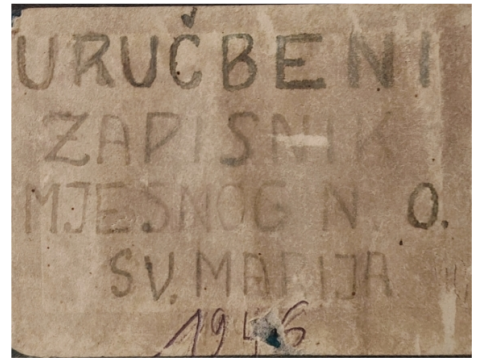 URUČBENI
ZAPISNIK
MJESNOG N. O.
SV. MARIJA
1946.